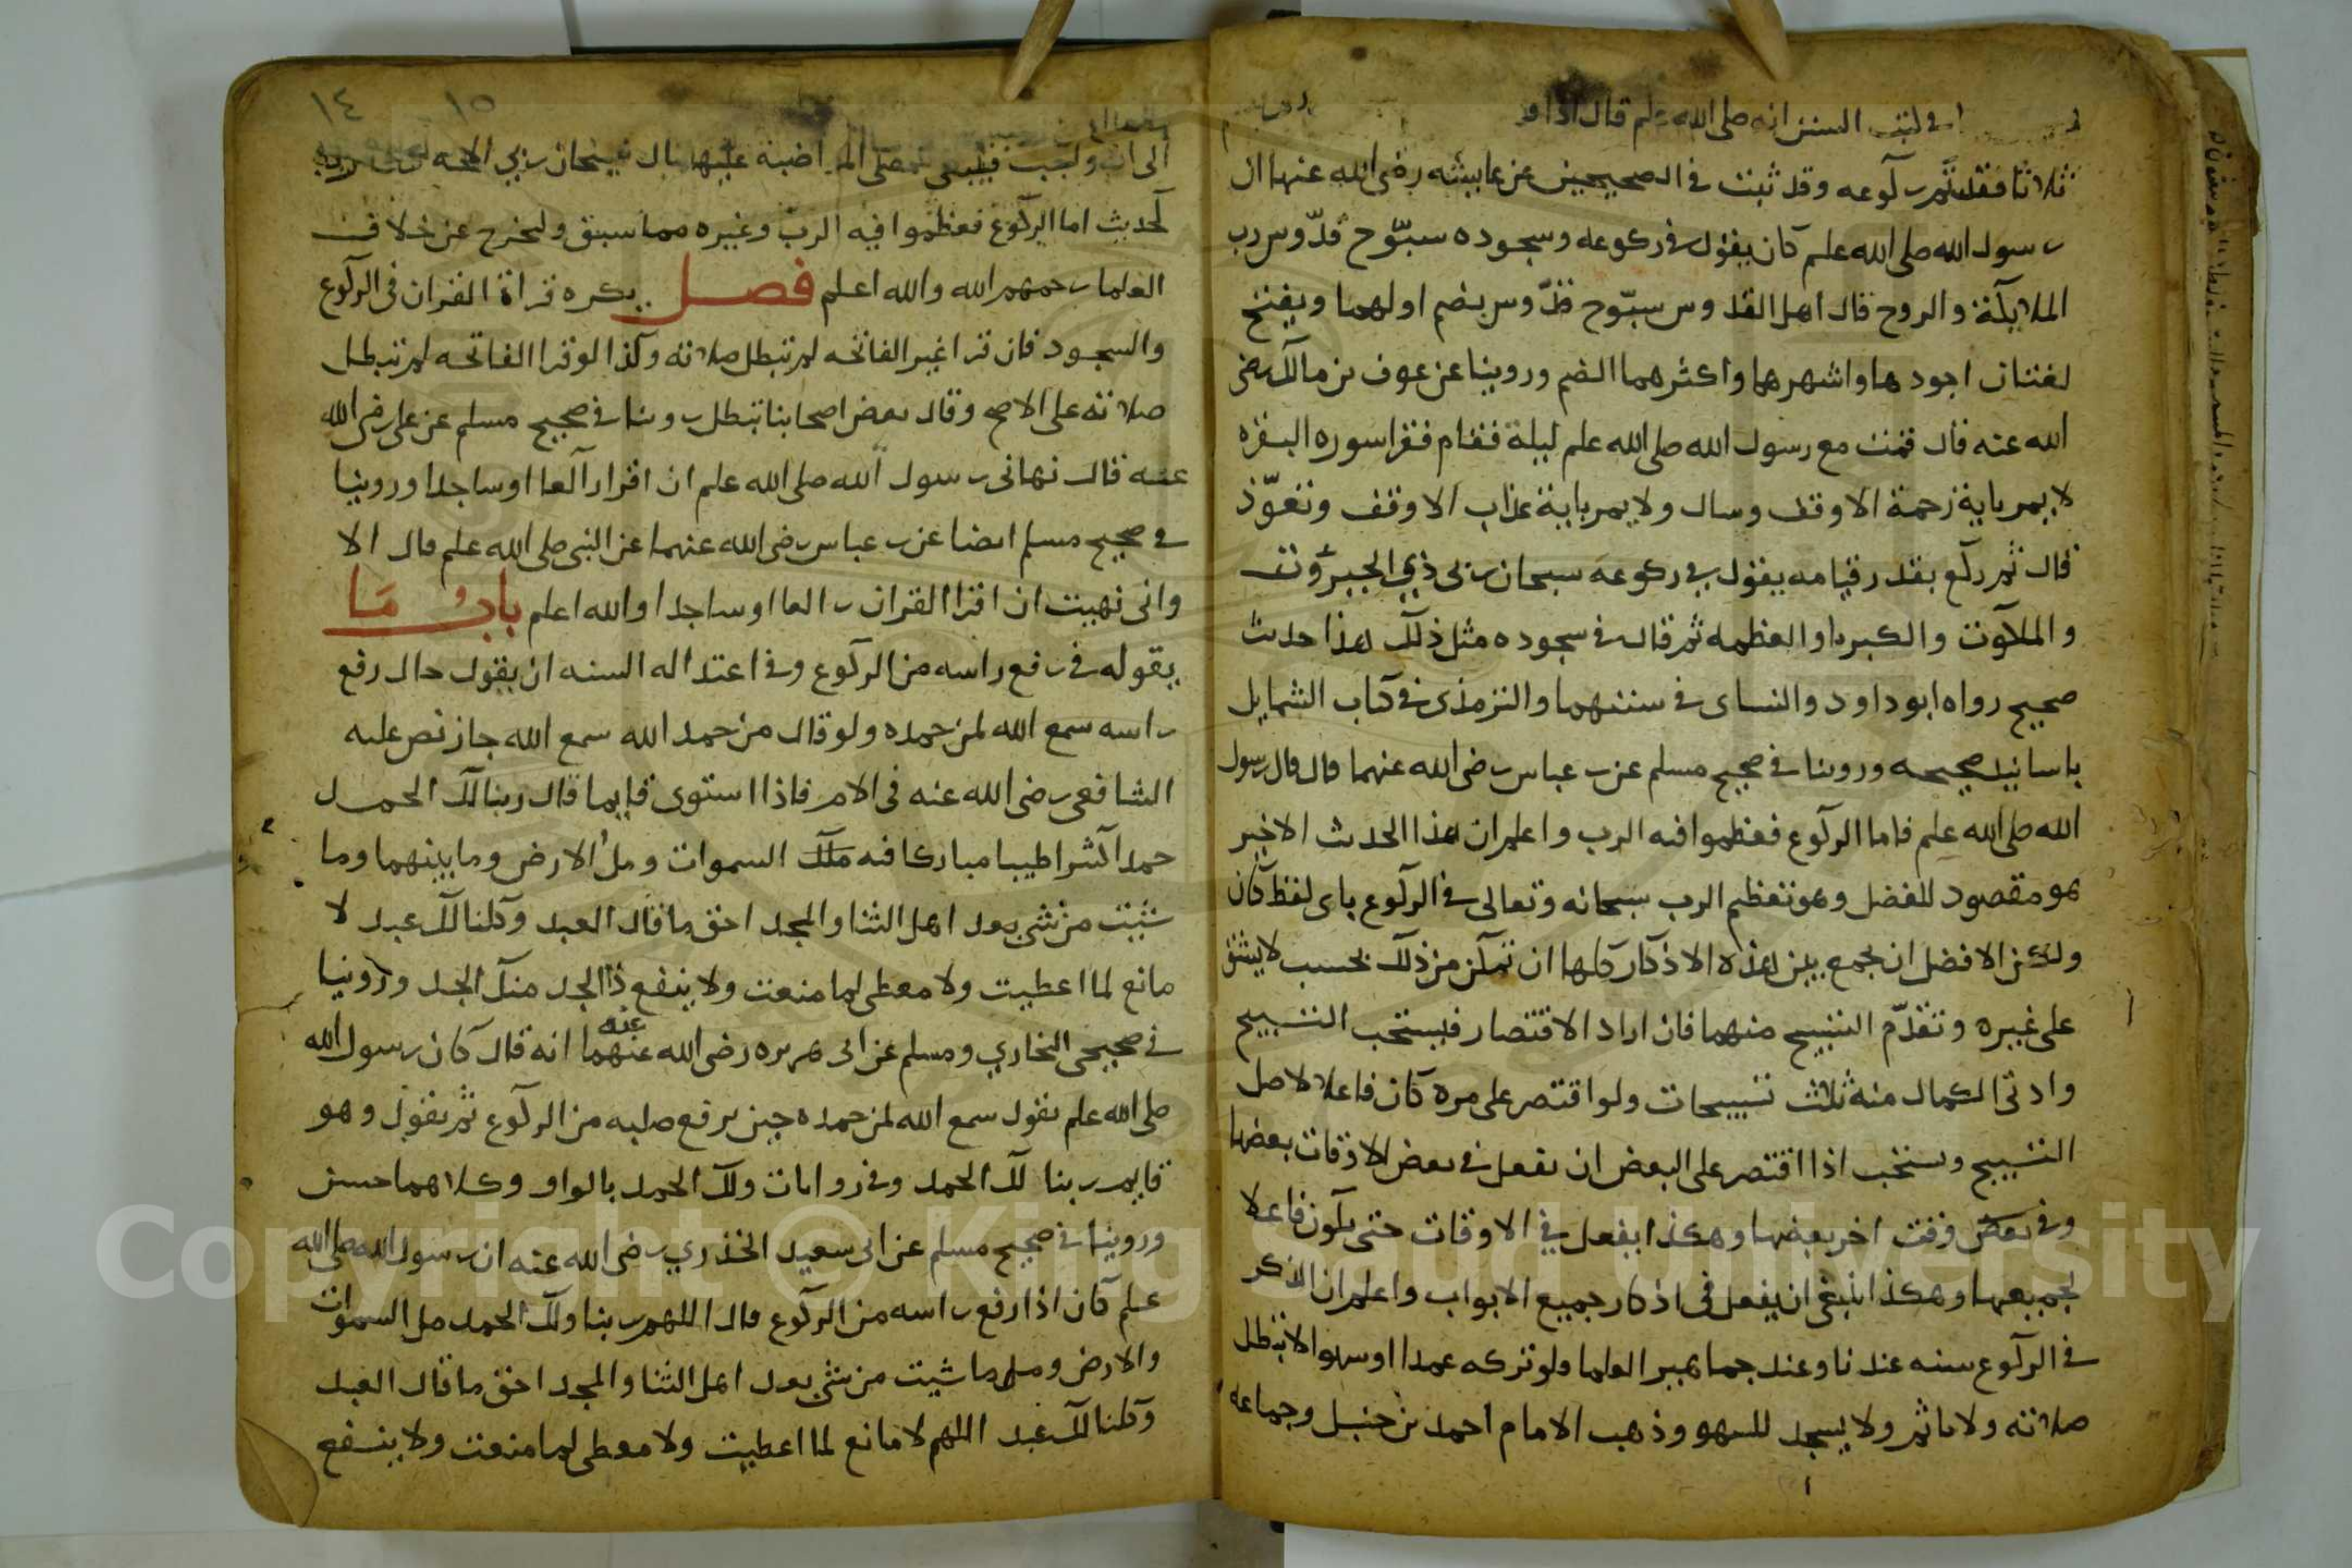 في كتب السنن انه صلى الله علم قال اذا
ثلاثا فقد تم ركوعه وقد ثبت في الصحيحين عن عايشه رضي الله عنها ان
رسول الله صلى الله علم كان يقول في ركوعه وسجوده سبّوح قدّوس رب
الملايكة والروح قال اهل اللغه سبّوح قدّوس بضم اولهما ويفتح
لغتان اجودها واشهرهما واكثرهما الضم وروينا عن عوف بن مالك رضي
الله عنه قال قمت مع رسول الله صلى الله علم ليلة فقام فقرا سوره البقره
لا يمر باية رحمة الا وقف وسال ولا يمر باية عذاب الا وقف وتعوّذ
قال ثم ركع بقدر قيامه يقول في ركوعه سبحان ربي ذي الجبروت
والملكوت والكبريا والعظمه ثم قال في سجوده مثل ذلك هذا حديث
صحيح رواه ابو داود والنساى في سننهما والترمذى في كتاب الشمايل
باسانيد صحيحه وروينا في صحيح مسلم عن ب عباس رضى الله عنهما قال قال رسول
الله صلى الله علم فاما الركوع فعظموا فيه الرب واعلم ان هذا الحديث الاخير
هو مقصود الفصل وهو تعظيم الرب سبحانه وتعالى في الركوع باى لفظ كان
ولكن الافضل ان يجمع بين هذه الاذكار كلها ان تمكن من ذلك بحيث لا يشق
على غيره وتقدّم التسبيح منهما فان اراد الاقتصار فيستحب التسبيح
وادنى الكمال منه ثلاث تسبيحات ولو اقتصر على مره كان فاعلا لاصل
التسبيح ويستحب اذا اقتصر على البعض ان يفعل في بعض الاوقات بعضها
وفي بعض وقت اخر بعضها وهكذا يفعل في الاوقات حتى يكون فاعلا
لجميعها وهكذا ينبغي ان يفعل في اذكار جميع الابواب واعلم ان الذكر
في الركوع سنه عندنا وعند جماهير العلما ولو تركه عمدا او سهوا لا تبطل
صلاته ولا ياثم ولا يسجد للسهو وذهب الامام احمد بن حنبل وجماعه
١٤ ١٥
الى انه واجب فينبغي للمصلى المحافظة عليها
لحديث اما الركوع فعظموا فيه الرب وغيره مما سبق وليخرج عن خلاف
العلما رحمهم الله والله اعلم فصل يكره قراة القران في الركوع
والسجود فان قرا غير الفاتحه لم تبطل صلاته وكذا لو قرا الفاتحه لم تبطل
صلاته على الاصح وقال بعض اصحابنا تبطل روينا في صحيح مسلم عن على رضى الله
عنه قال نهانى رسول الله صلى الله علم ان اقرا راكعا او ساجدا وروينا
في صحيح مسلم ايضا عن ب عباس رضى الله عنهما عن النبي صلى الله علم قال الا
وانى نهيت ان اقرا القران راكعا او ساجدا والله اعلم بابُ مَا
يقوله في رفع راسه من الركوع وفي اعتداله السنه ان يقول حال رفع
راسه سمع الله لمن حمده ولو قال من حمد الله سمع الله جاز نص عليه
الشافعي رضى الله عنه في الام فاذا استوى قايما قال ربنا لك الحمد
حمدا كثيرا طيبا مباركا فيه ملك السموات ومل الارض وما بينهما وما
شئت من شي بعد اهل الثنا والمجد احق ما قال العبد وكلنا لك عبد لا
مانع لما اعطيت ولا معطى لما منعت ولا ينفع ذا الجد منك الجد وروينا
في صحيحى البخاري ومسلم عن ابى هريره رضى الله عنهما عنه انه قال كان رسول الله
صلى الله علم يقول سمع الله لمن حمده حين يرفع صلبه من الركوع ثم يقول وهو
قايم ربنا لك الحمد وفي روايات ولك الحمد بالواو وكلاهما حسن
وروينا في صحيح مسلم عن ابى سعيد الخدري رضى الله عنه ان رسول الله صلى الله
علم كان اذا رفع راسه من الركوع قال اللهم ربنا ولك الحمد مل السموات
والارض ومل ما شيت من شي بعد اهل الثنا والمجد احق ما قال العبد
وكلنا لك عبد اللهم لا مانع لما اعطيت ولا معطى لما منعت ولا ينفع
Copyright © King Saud University